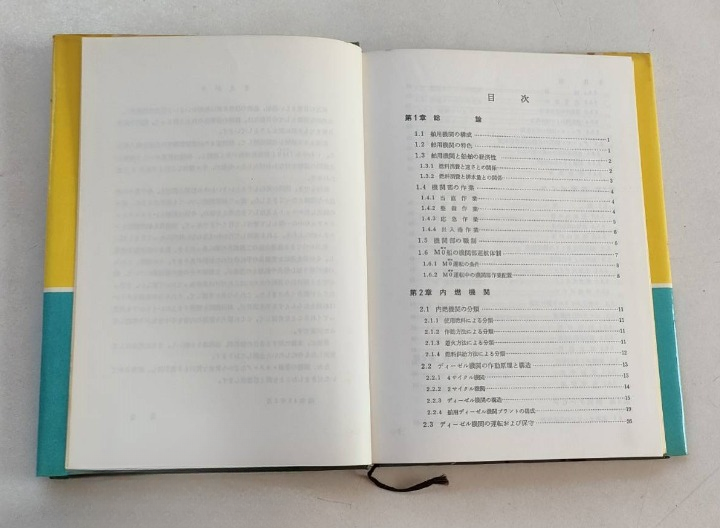 目 次
第1章 総 論
1.1 舶用機関の構成 1
1.2 舶用機関の特色 1
1.3 舶用機関と船舶の経済性 2
1.3.1 燃料消費と速力との関係 2
1.3.2 燃料消費と排水量との関係 3
1.4 機関部の作業 4
1.4.1 当直作業 4
1.4.2 整備作業 4
1.4.3 応急作業 5
1.4.4 出入港作業 6
1.5 機関部の職制 6
1.6 M0船の機関部運航体制 7
1.6.1 M0運転の条件 8
1.6.2 M0運転中の機関部作業配置 8
第2章 内燃機関
2.1 内燃機関の分類 11
2.1.1 使用燃料による分類 11
2.1.2 作動方法による分類 11
2.1.3 着火方法による分類 11
2.1.4 燃料供給方法による分類 12
2.2 ディーゼル機関の作動原理と構造 13
2.2.1 4サイクル機関 13
2.2.2 2サイクル機関 14
2.2.3 ディーゼル機関の構造 15
2.2.4 舶用ディーゼル機関プラントの様式 19
2.3 ディーゼル機関の運転および保守 26